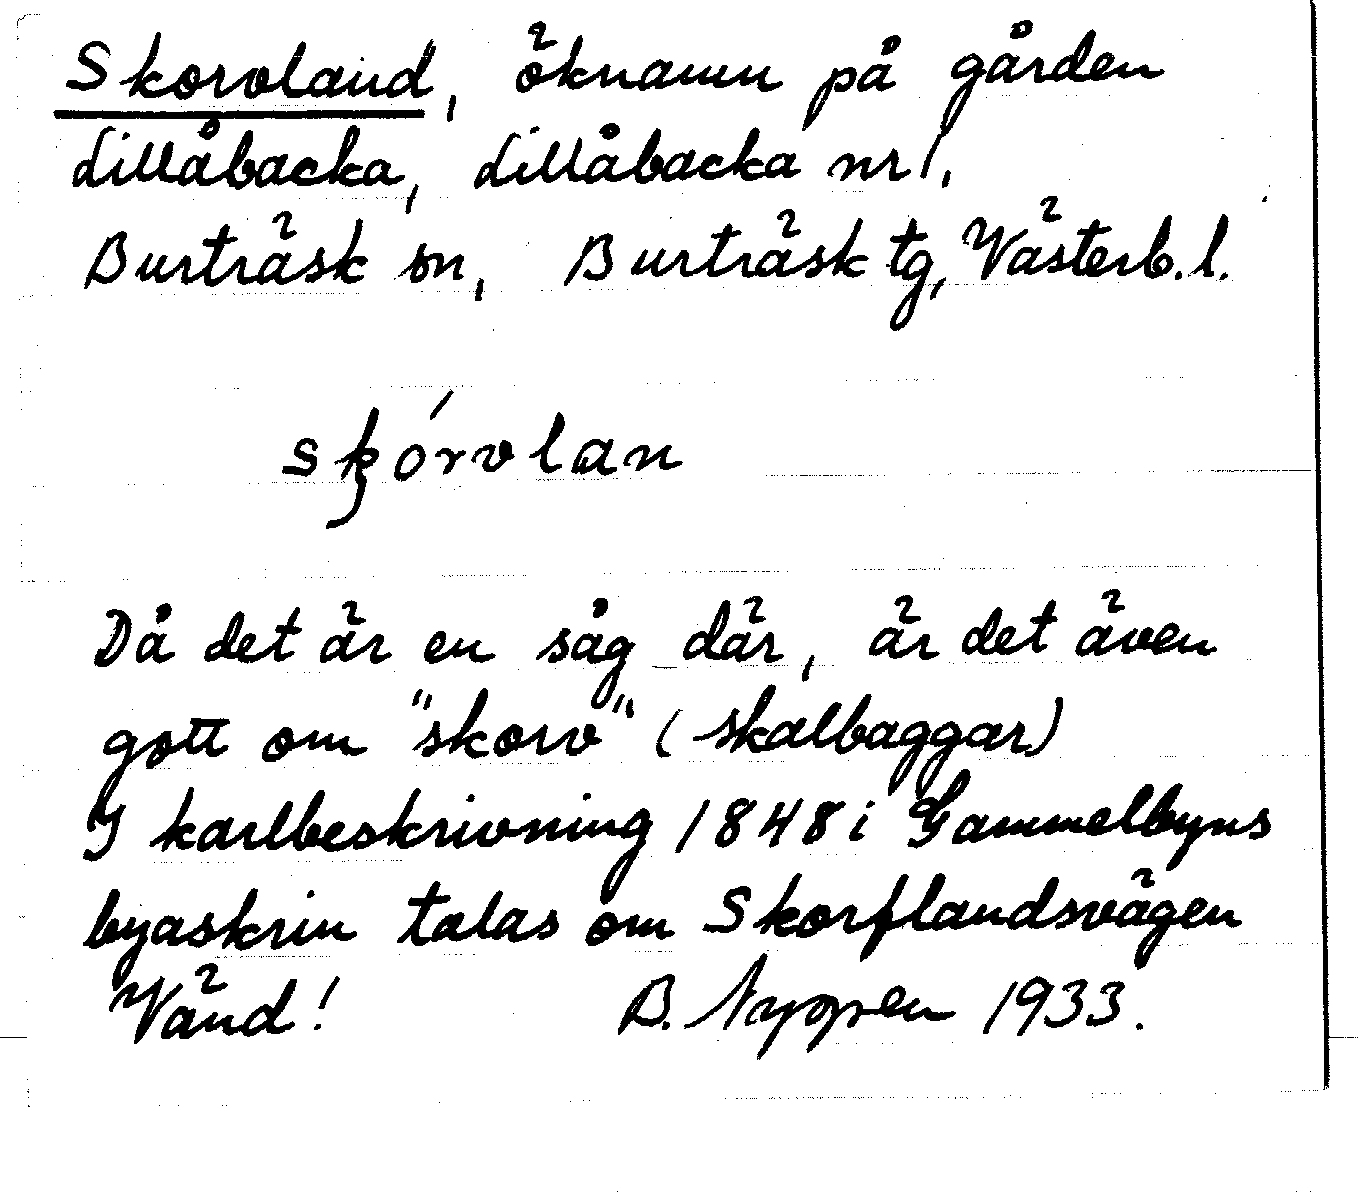 Skorvland, öknamn på gården
Lillåbacka, Lillåbacka nr 1,
Burträsk sn, Burträsk tg, Västerb. l.
skórvlan
Då det är en såg där, är det även
gott om "skorv" (skalbaggar)
I karlbeskrivning 1848 i Gammelbyns
byaskrin talas om Skorflandsvägen
Vänd! B. Nygren 1933.